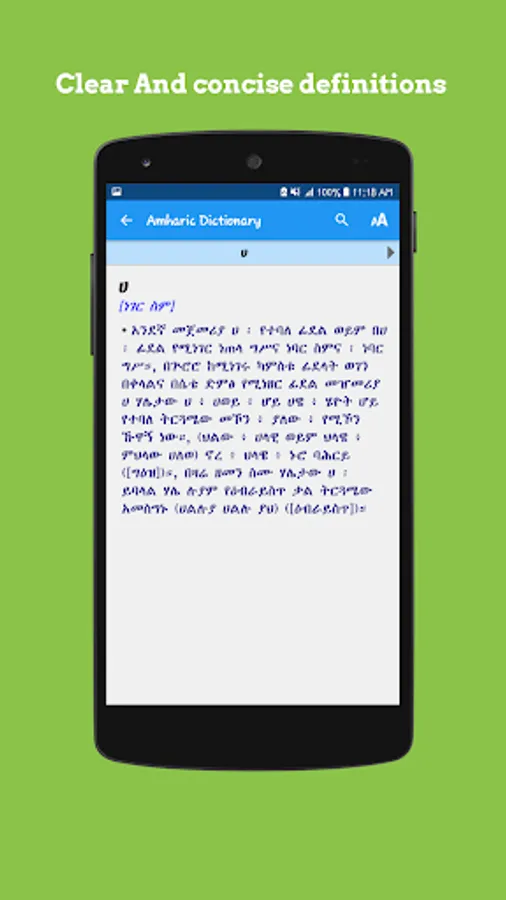 Clear And concise definitions
100% 11:18 AM
Amharic Dictionary
AA
ሀ
ሀ
[ነገር ስም]
• አንደኛ መጀመሪያ ሀ ፤ የተባለ ፊደል ወይም በሀ
፤ ፊደል የሚነገር ነጠላ ግሥና ነባር ስምና ፤ ነባር
ግሥ።, በጕሮሮ ከሚነገሩ ካምስቱ ፊደላት ወገን
በቀላልና በሴቴ ድምፅ የሚነዘር ፊደል መዠመሪያ
ሀ ሃሌታው ሀ ፤ ሀወይ ፤ ሆይ ሀዌ ፤ ሄዮት ሆይ
የተባለ ትርጓሜው መኾን ፤ ያለው ፤ የሚኾን
ኹዋኝ ነው።, (ህልው ፤ ሀላዊ ወይም ህላዌ ፤
ምህላው ሀለወ) ኖረ ፤ ሀላዌ ፤ ኑሮ ባሕርይ
([ግዕዝ])።, በዛሬ ዘመን ስሙ ሃሌታው ሀ ፤
ይባላል ሃሌ ሉያም የዕብራይስጥ ቃል ትርጓሜው
አመስግኑ (ሀልሉያ ሀልሉ ያህ) ([ዕብራይስጥ])።